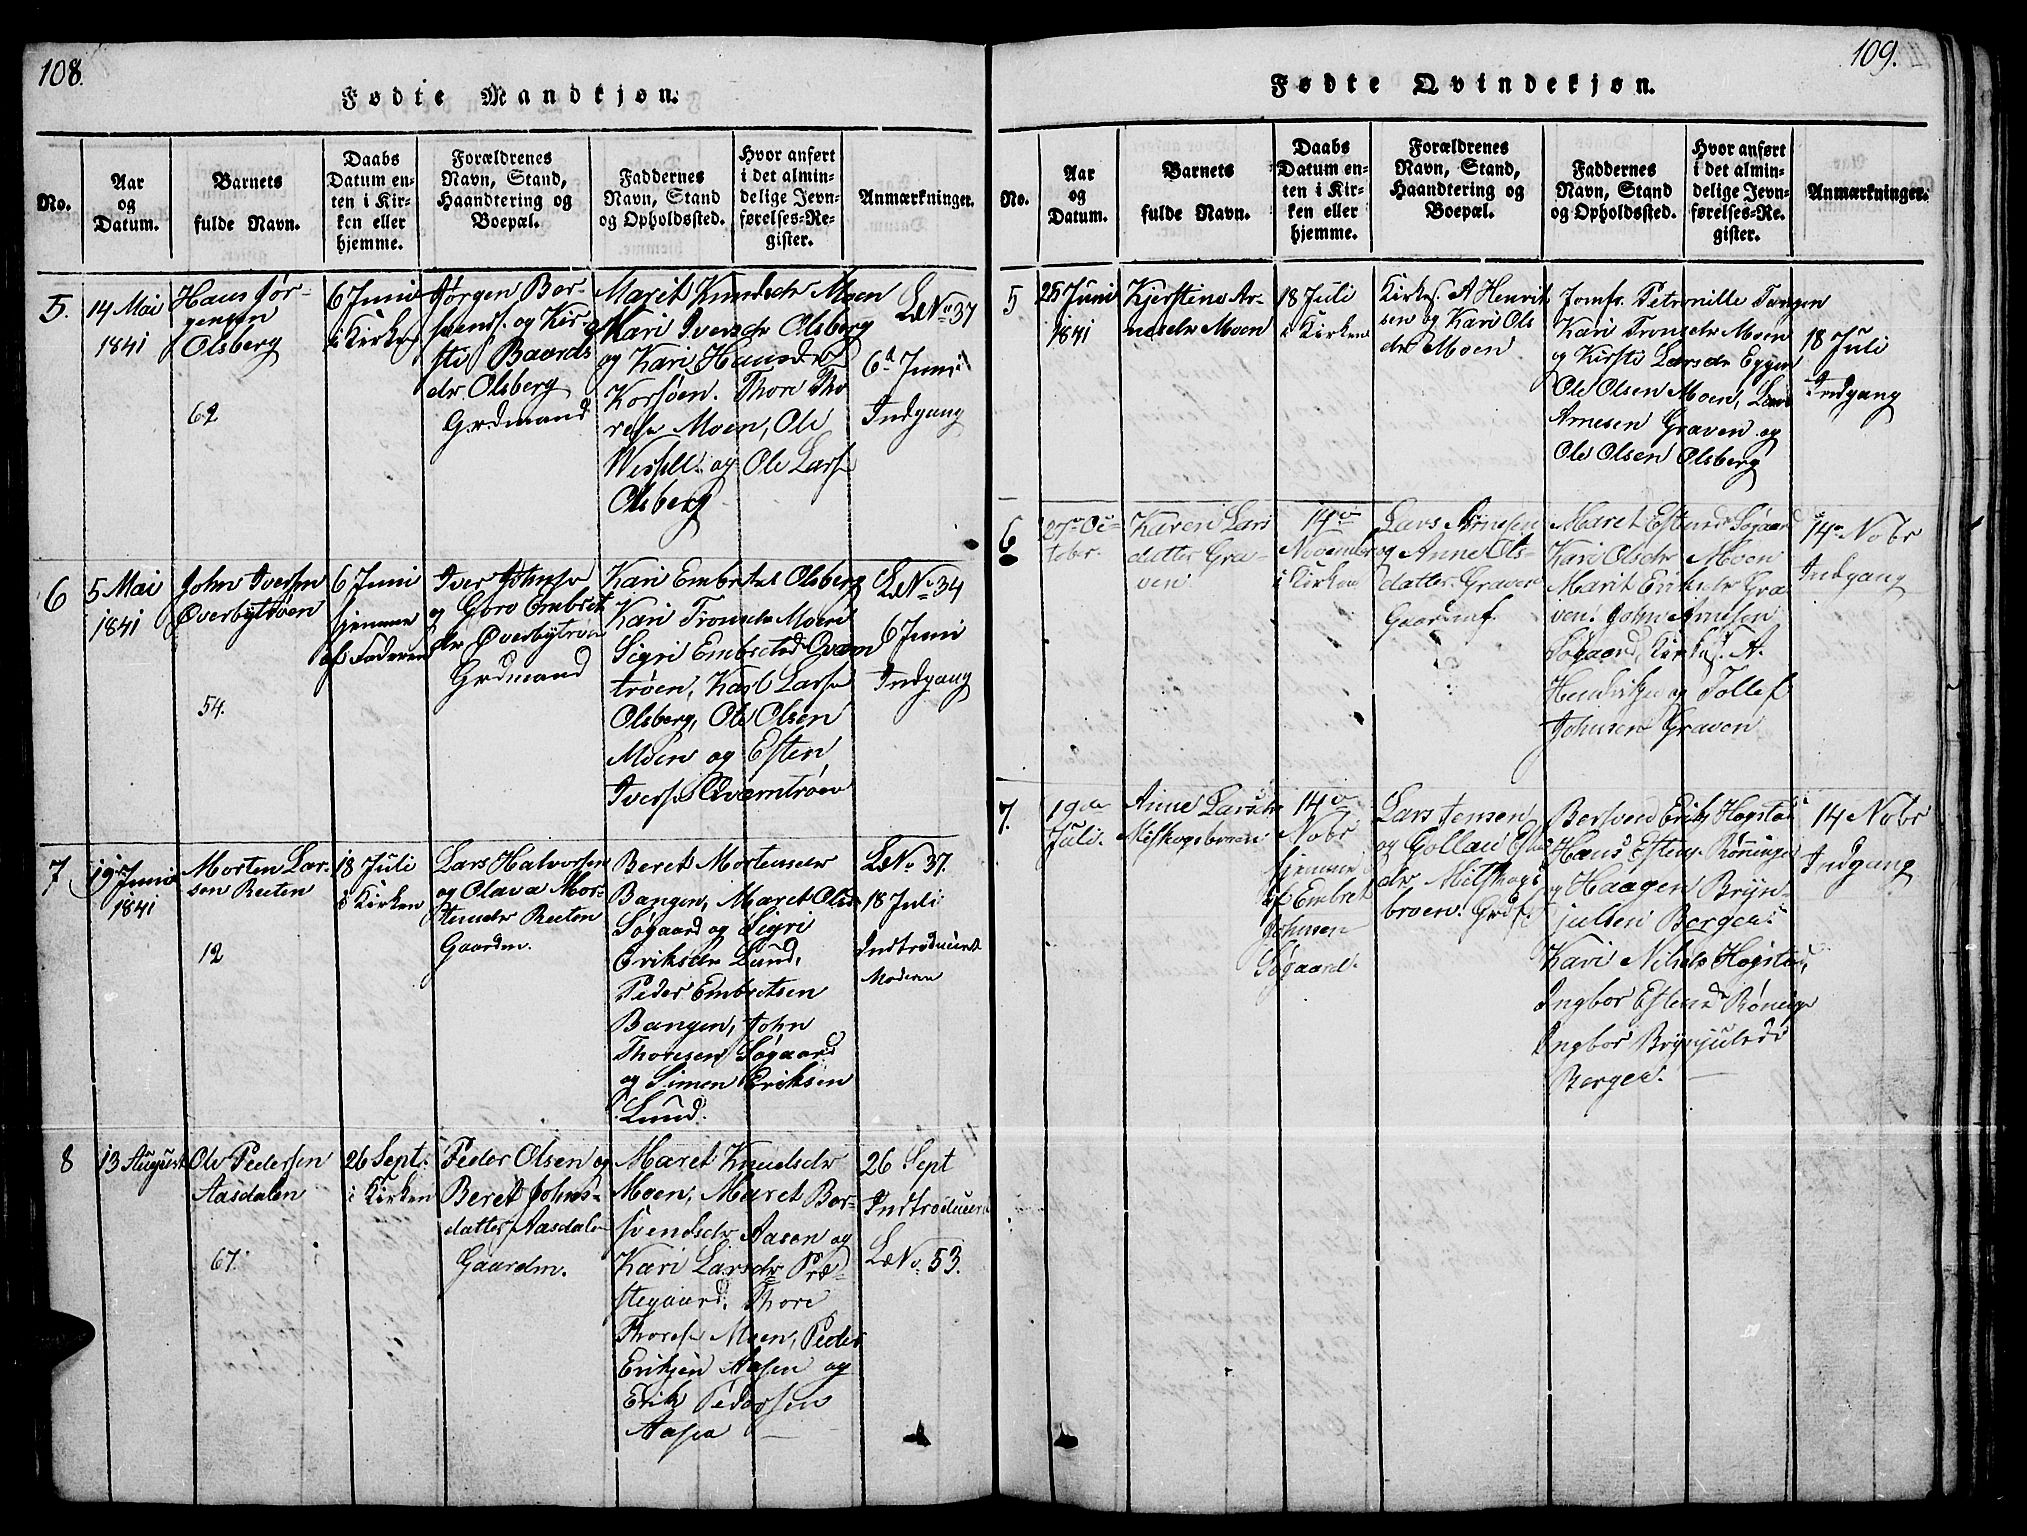 108.
Fødte Mandkjøn.
No.
Aar
og
Datum.
Barnets
fulde Navn.
Daabs
Datum en-
ten i Kir-
ken eller
hjemme.
Forældrenes
Navn, Stand,
Haandtering og
Boepæl.
Faddernes
Navn, Stand
og Opholdssted.
Hvor anført
i det almin-
delige Jevn-
førelses-Re-
gister.
Anmærkninger.
5.
14 Mai
1841
Hans Jør-
gensen
Olsberg
62
6 Juni
i Kirken
Jørgen Ber-
svends. og Kir-
sti Baards
dr Olsberg
Grdmand
Marit Knudsdr Moen
Kari Iversdr Olsberg
og Kari Hansdr
Korsøen. Thore Tho
resen Moen, Ole
Wessell. og Ole Lars.
Olsberg
L. No 37
6d Juni
Indgang
6
5 Mai
1841
John Iversen
Øverbytrøen
54.
6 Juni
hjemme
af Faderen
Iver Johnsen
og Goro Embret
dr Øverbytrøe
Grdmand
Kari Embretsd Olsberg
Kari Tronsdr Moen
Sigri Embretsd Qværn
trøen, Karl Larsen
Olsberg, Ole Olsen
Moen og Esten
Ivers. Qværntrøen
L. No 34
6 Juni
Indgang
7
19 Juni
1841
Morten Lar-
sen Reeten
12
18 Juli
i Kirken
Lars Halvorsen
og Olava Mor-
tensdr Reeten
Gaardm.
Beret Mortensdr
Bangen, Maret Olsd
Søgaard og Sigri
Eriksdr Lund,
Peder Embretsen
Bangen, John
Thoresen Søgaard
og Simen Eriksen
Lund.
L. No 37.
18 Juli
Indtroduceret
Moderen
8
13 August
Ole Pedersen
Aasdalen
67.
26 Sept.
i Kirken
Peder Olsen og
Beret Johns-
datter Aasdale
Gaardm.
Maret Knudsdr
Moen, Maret Ber-
svendsdr Aasen og
Kari Larsdr Præ-
stegaard, Thore
Thores. Moen, Peder
Eriksen Aasen og
Erik Pedersen
Aasen
26 Sept
Indtroduceret
L. No. 53.
109.
Fødte Qvindekjøn.
No.
Aar
og
Datum.
Barnets
fulde Navn.
Daabs
Datum en-
ten i Kir-
ken eller
hjemme.
Forældrenes
Navn, Stand,
Haandtering og
Boepæl.
Faddernes
Navn, Stand
og Opholdssted.
Hvor anført
i det almin-
delige Jevn-
førelses-Re-
gister.
Anmærkninger.
5
25 Juni
1841
Kjerstene Ar-
nesdr Moen
18 Juli
i Kirken
Kirkes. A Henrik
sen og Kari Ols
dr Moen
Jomfr. Petronille Tangen
Kari Tronsdr Moen
og Kirsti Larsdr Eggen
Ole Olsen Moen, Lars
Arnesen Graven og
Ole Olsen Olsberg
18 Juli
Indgang
6
27 Oc-
tober
Karen Lars
datter Gra-
ven
14de
November
i Kirken
Lars Arnesen
og Anne Ols-
datter Graven
Gaardm.
Maret Estensdr Søgaard
Kari Olsdr Moen
Marit Eriksdr Gra
ven. John Arnesen
Søgaard, Kirkes. A.
Hendriksen og Tollef
Johnsen Graven
14 Nobr
Indgang
7.
19de
Juli.
Anne Larsdr
Melskogsbroen
14de
Nobr
hjemme
af Embret
Johnsen
Søgaard.
Lars Jensen
og Gollau Este
dr Melskogs
broen. Grdf.
Bersvend Erik. Høgstad
Hans Estens. Røninge
og Haagen Bryn
julsen Bergee.
Kari Nilsdr Høgstad,
Ingbor Estensdr Røninge
Ingbor Brynjulsdr
Bergee.
14 Nobr
Indgang